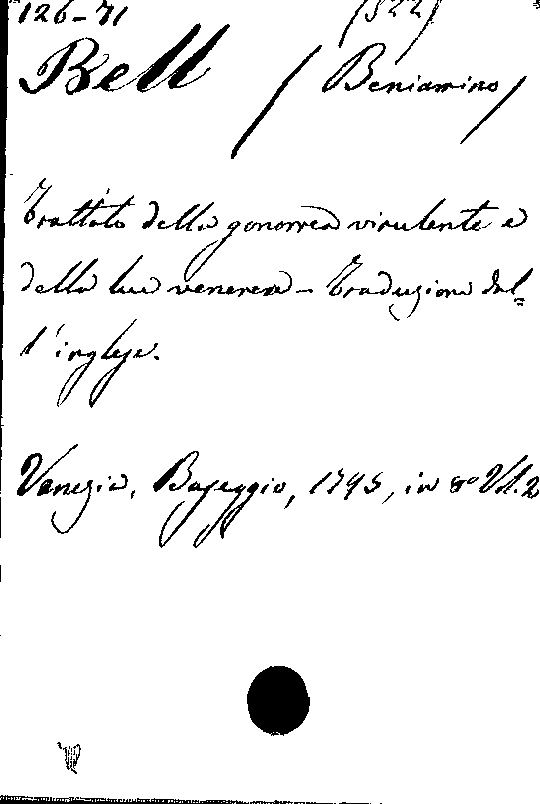 126-71 (522)
Bell (Beniamino)
Trattato della gonorrea virulente e
della lue venerea - Traduzione dal=
l'inglese.
Venezia, Baseggio, 1795, in 8° Vol. 2